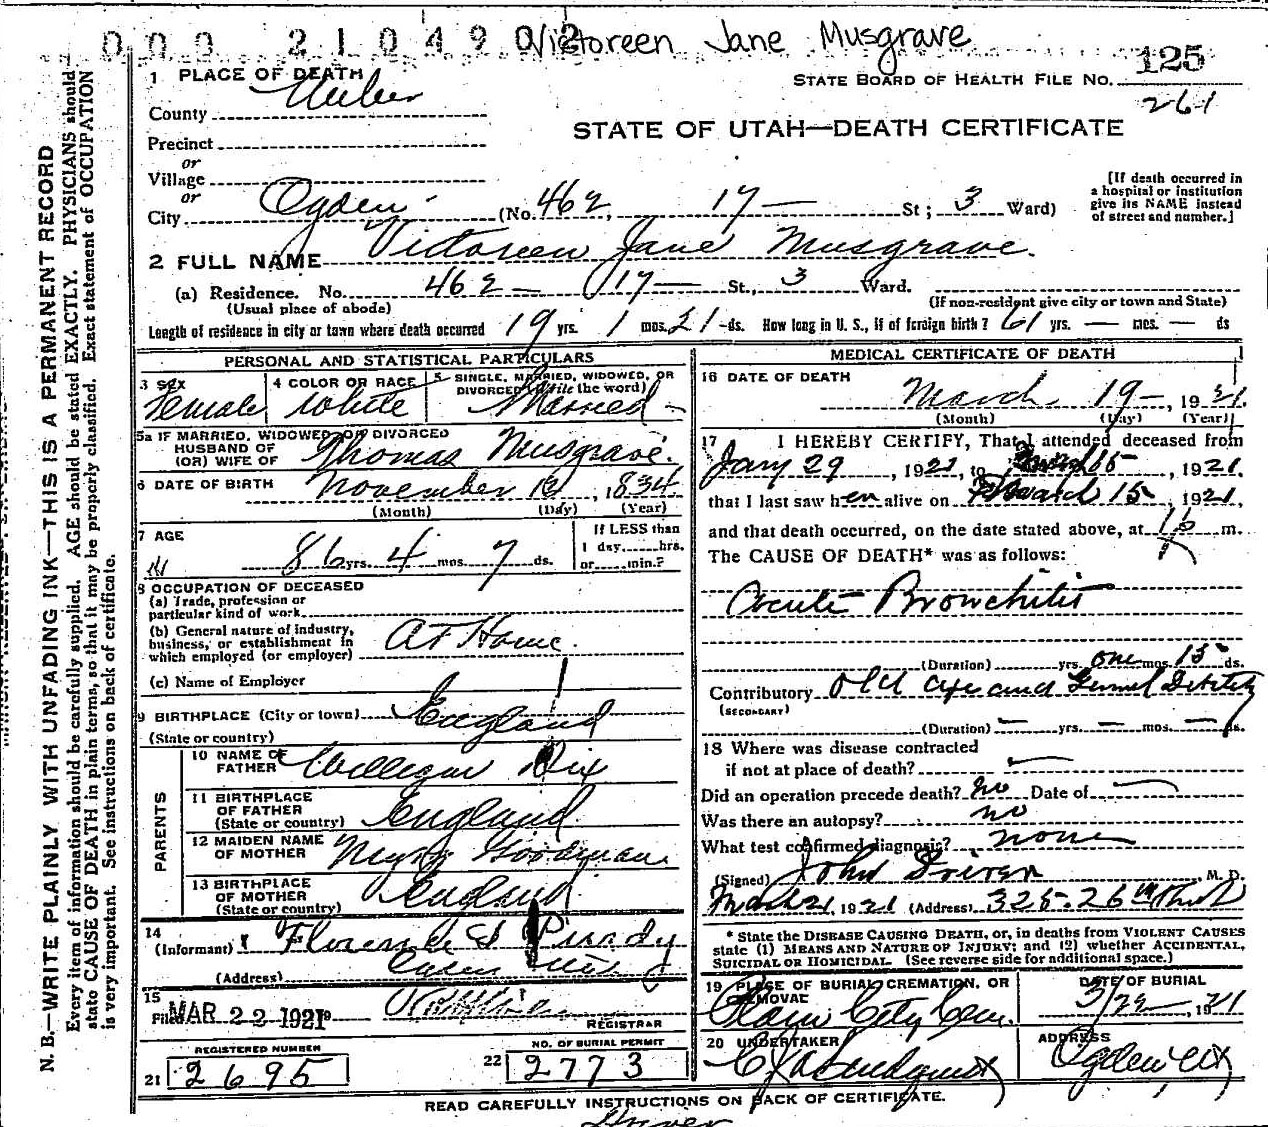 000 2104902 Victoreen Jane Musgrave
1 PLACE OF DEATH
STATE BOARD OF HEALTH FILE NO. 125
261
County Weber
STATE OF UTAH—DEATH CERTIFICATE
Precinct
or
Village
or
City Ogden (No. 462, 17 — St; 3 Ward)
[If death occurred in a hospital or institution give its NAME instead of street and number.]
2 FULL NAME Victoreen Jane Musgrave.
(a) Residence. No. 462 — 17 — St., 3 Ward.
(Usual place of abode)
(If non-resident give city or town and State)
Length of residence in city or town where death occurred 19 yrs. 1 mos. 21 ds. How long in U. S., if of foreign birth? 61 yrs. — mos. — ds
PERSONAL AND STATISTICAL PARTICULARS
3 SEX Female
4 COLOR OR RACE White
5 SINGLE, MARRIED, WIDOWED, OR DIVORCED (write the word) Married
5a IF MARRIED, WIDOWED, OR DIVORCED
HUSBAND OF
(OR) WIFE OF Thomas Musgrave.
6 DATE OF BIRTH November 12, 1834
(Month) (Day) (Year)
7 AGE
86 yrs. 4 mos. 7 ds.
If LESS than
1 day,......hrs.
or......min.?
8 OCCUPATION OF DECEASED
(a) Trade, profession or
particular kind of work
(b) General nature of industry,
business, or establishment in
which employed (or employer) At Home.
(c) Name of Employer
9 BIRTHPLACE (City or town) England
(State or country)
PARENTS
10 NAME OF
FATHER William Dix
11 BIRTHPLACE
OF FATHER
(State or country) England
12 MAIDEN NAME
OF MOTHER Goodman
13 BIRTHPLACE
OF MOTHER
(State or country) England
14
(Informant) Florence
(Address) Ogden Utah
15
Filed MAR 22 1921
REGISTRAR
REGISTERED NUMBER
21 2695
NO. OF BURIAL PERMIT
22 2773
MEDICAL CERTIFICATE OF DEATH
16 DATE OF DEATH
March 19 —, 1921.
(Month) (Day) (Year)
17 I HEREBY CERTIFY, That I attended deceased from
Jany 29, 1921, to March 15, 1921.
that I last saw her alive on March 15, 1921,
and that death occurred, on the date stated above, at m.
The CAUSE OF DEATH* was as follows:
Acute Bronchitis
(Duration) yrs. one mos. 15 ds.
Contributory Old Age and General Debility
(SECONDARY)
(Duration) — yrs. — mos. — ds.
18 Where was disease contracted
if not at place of death? —
Did an operation precede death? no Date of —
Was there an autopsy? no
What test confirmed diagnosis? none
(Signed) John Driver, M. D.
March 21, 1921 (Address) 325-26th Street
* State the DISEASE CAUSING DEATH, or, in deaths from VIOLENT CAUSES
state (1) MEANS AND NATURE OF INJURY; and (2) whether ACCIDENTAL,
SUICIDAL OR HOMICIDAL. (See reverse side for additional space.)
19 PLACE OF BURIAL, CREMATION, OR
REMOVAL
Plain City Cem.
DATE OF BURIAL
3/22, 1921
20 UNDERTAKER
Lindquist
ADDRESS
Ogden, Ut
READ CAREFULLY INSTRUCTIONS ON BACK OF CERTIFICATE.
Driver
N. B.—WRITE PLAINLY WITH UNFADING INK—THIS IS A PERMANENT RECORD
Every item of information should be carefully supplied. AGE should be stated EXACTLY. PHYSICIANS should
state CAUSE OF DEATH in plain terms, so that it may be properly classified. Exact statement of OCCUPATION
is very important. See instructions on back of certificate.